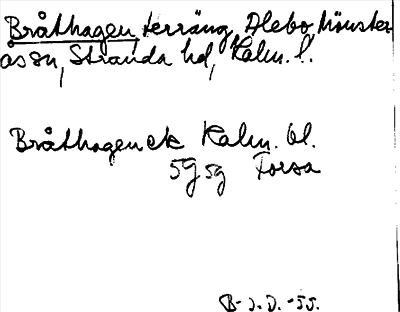 Bråthagen, terräng, Alebo, Mönster-
ås sn, Stranda hd, Kalm. l.
Bråthagen ek Kalm. bl.
5g 5g Forsa
B-J.D.-55.